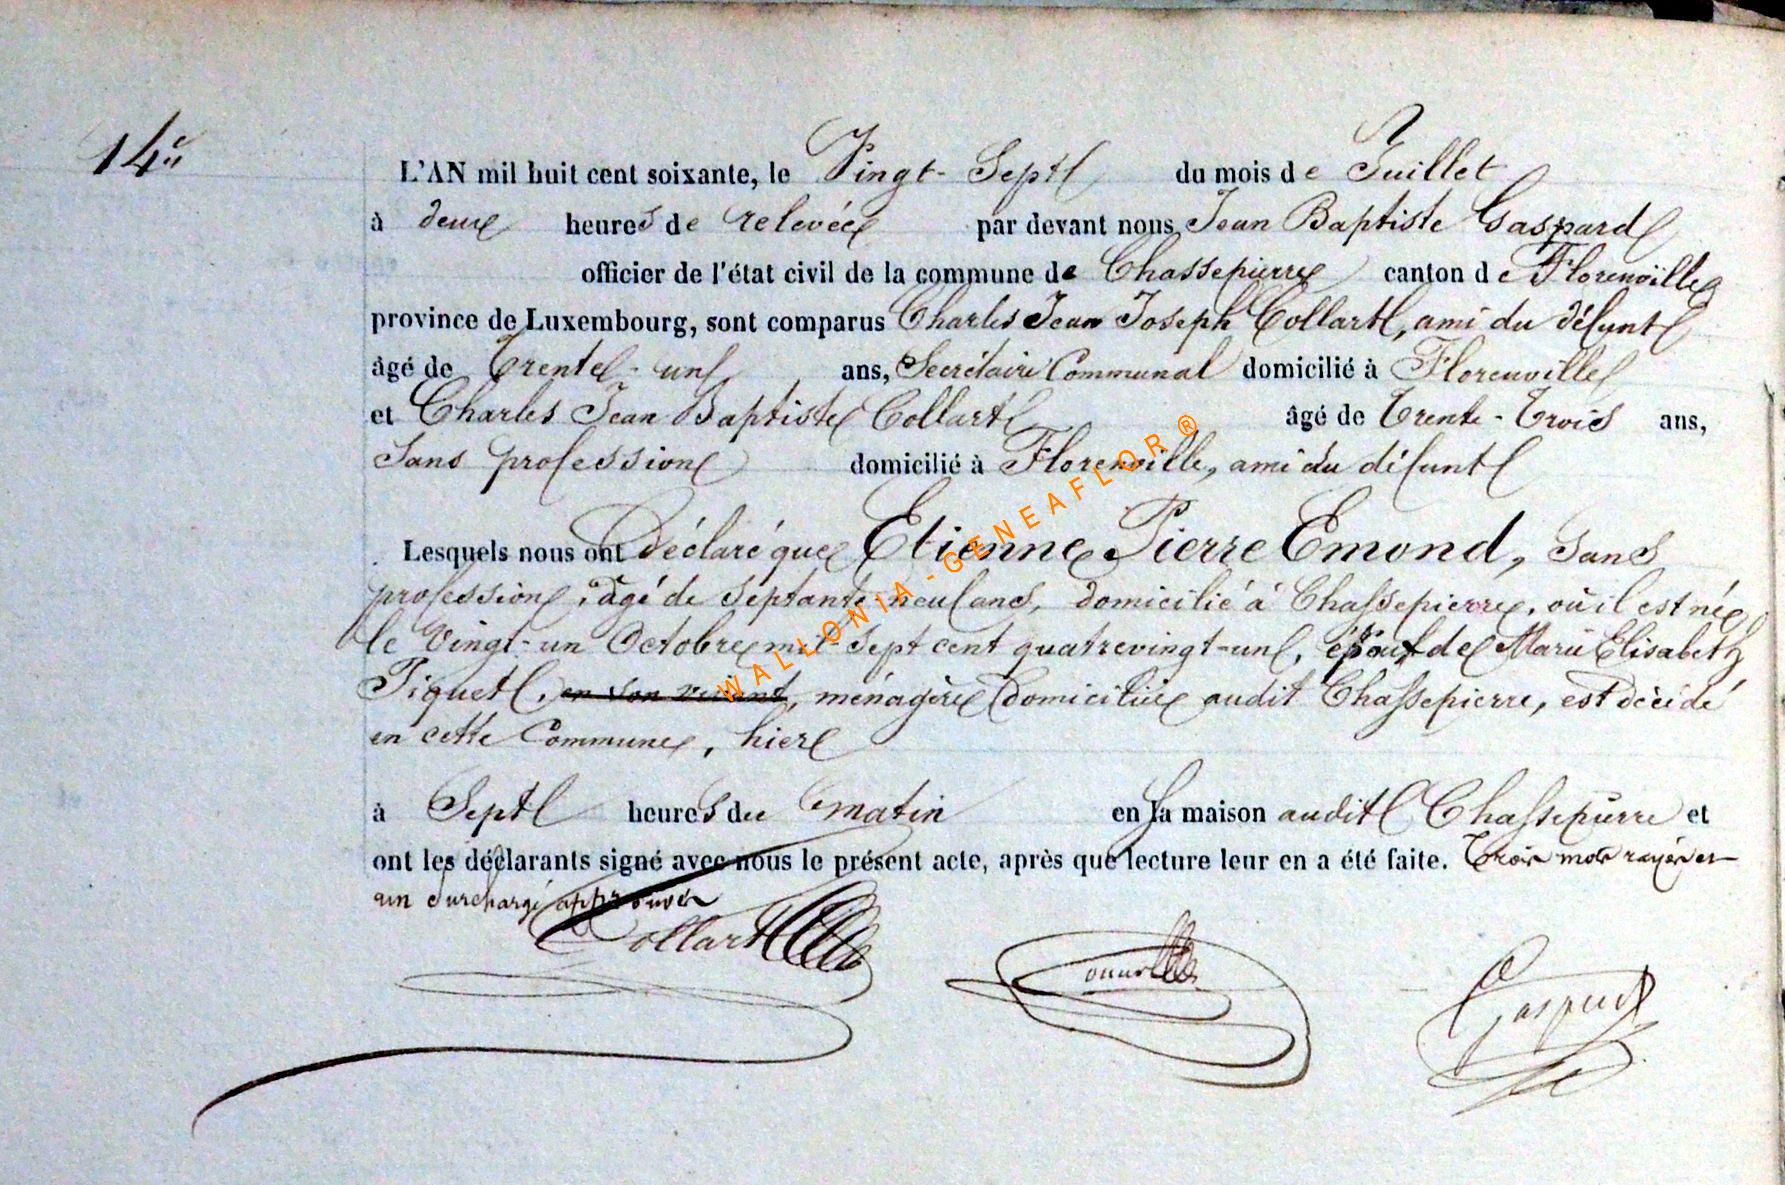 14e
L'AN mil huit cent soixante, le Vingt-Sept du mois de Juillet
à deux heures de relevée par devant nous Jean Baptiste Gaspard
officier de l'état civil de la commune de Chassepierre canton de Florenville
province de Luxembourg, sont comparus Charles Jean Joseph Collart, ami du défunt
âgé de Trente-un ans, Secrétaire Communal domicilié à Florenville
et Charles Jean Baptiste Collart âgé de Trente-Trois ans,
Sans profession domicilié à Florenville, ami du défunt
Lesquels nous ont Déclaré que Etienne Pierre Emond, Sans
profession, âgé de Septante neuf ans, domicilié à Chassepierre, où il est né
le Vingt-un Octobre mil-Sept cent quatrevingt-un, époux de Marie Elisabeth
Piquet, en son vivant, ménagère domiciliée audit Chassepierre, est décédé
en cette Commune, hier
à Sept heures du matin en sa maison audit Chassepierre et
ont les déclarants signé avec nous le présent acte, après que lecture leur en a été faite. Trois mots rayés et
un Surchargé approuvés
Collart Gaspard
WALLONIA-GENEAFLOR ®